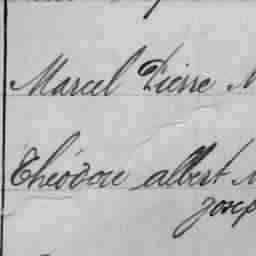 Marcel Pierre M
Théodore albert M
Josep